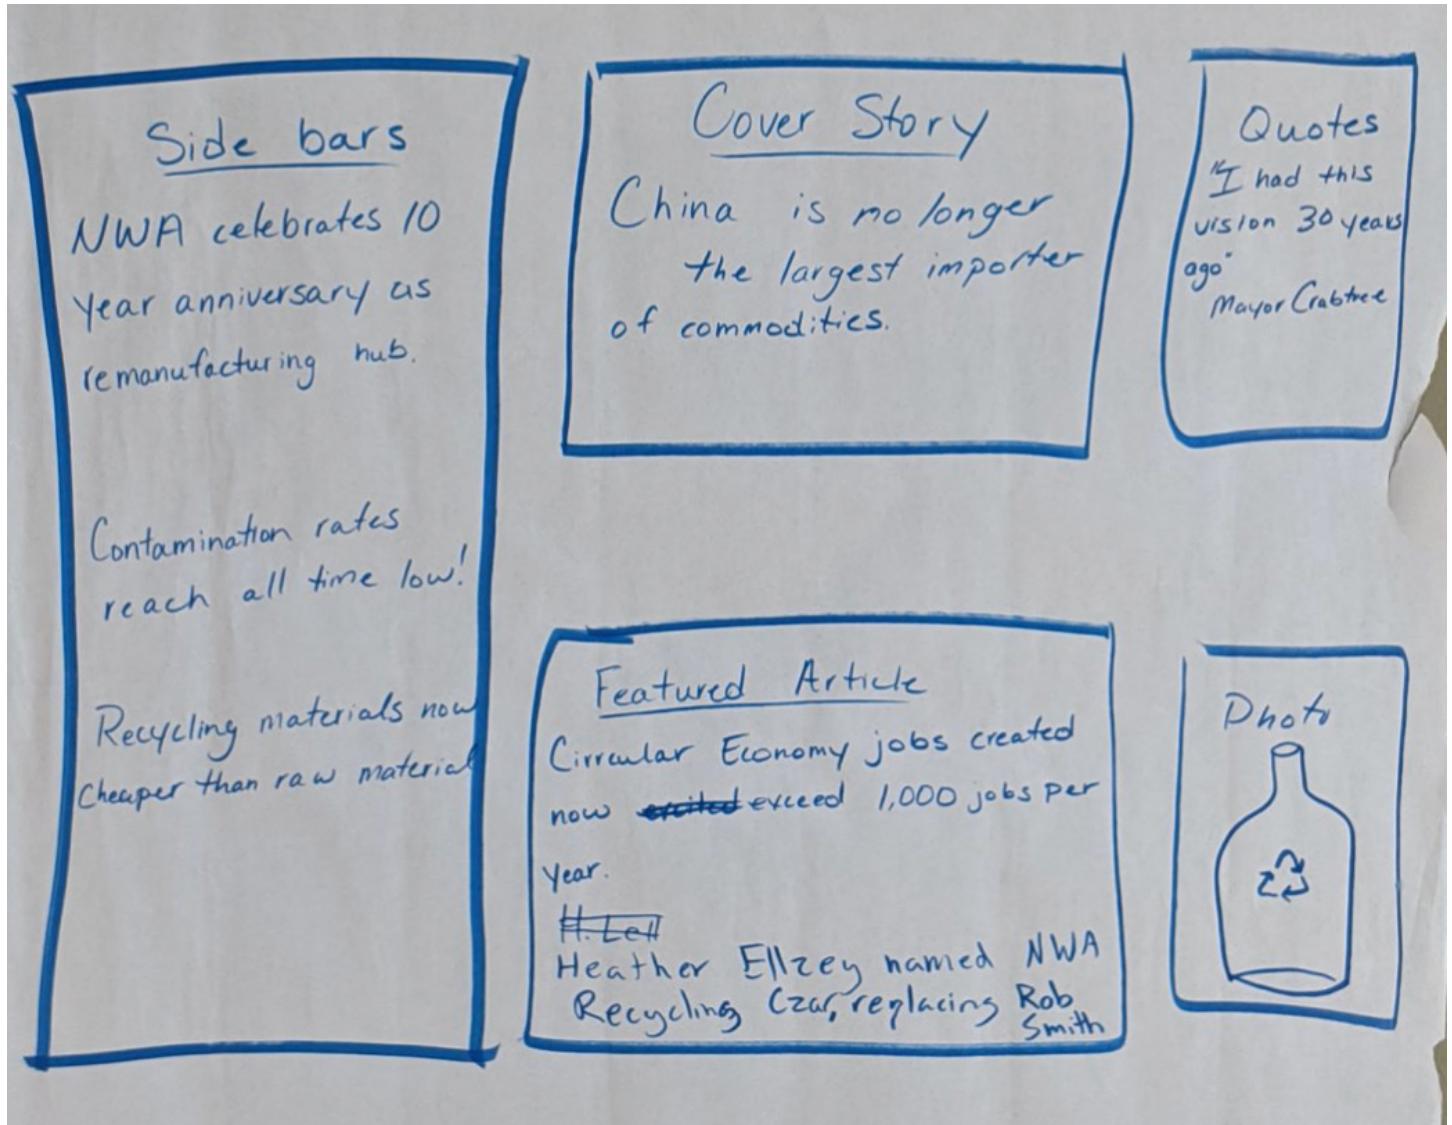 Side bars
NWA celebrates 10
year anniversary as
remanufacturing hub.
Contamination rates
reach all time low!
Recycling materials now
cheaper than raw material
Cover Story
China is no longer
the largest importer
of commodities.
Quotes
"I had this
vision 30 years
ago"
Mayor Crabtree
Featured Article
Circular Economy jobs created
now exceed 1,000 jobs per
year.
Heather Ellzey named NWA
Recycling Czar, replacing Rob
Smith
Photo